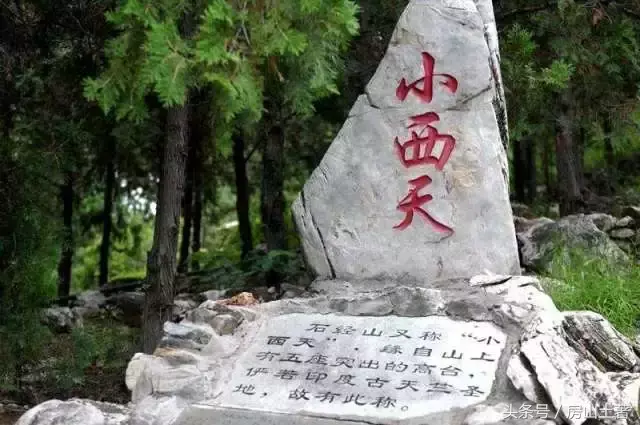 小
西
天
石经山又称“小
西天”，缘自山上
有五座突出的高台，
俨若印度古天竺圣
地，故有此称。
头条号 / 房山土著